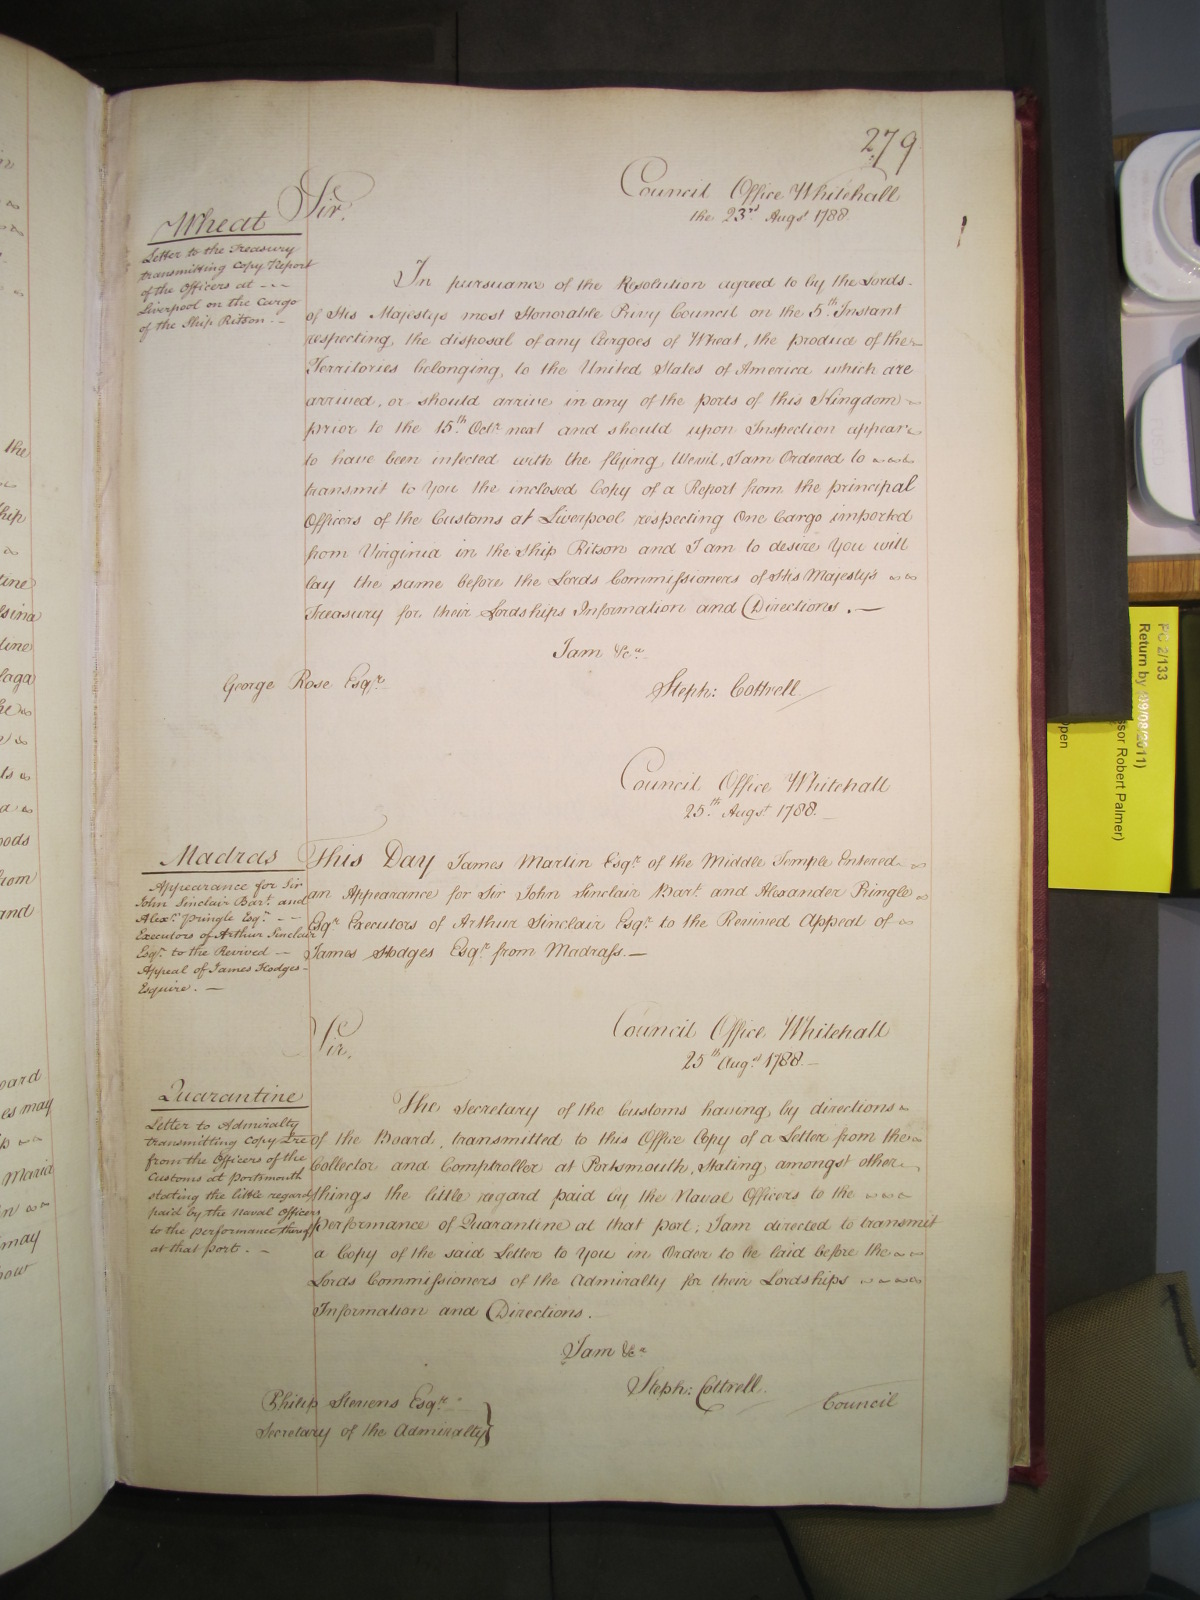 279
Council Office Whitehall
the 23rd Augst 1788
Sir.
Wheat
Letter to the Treasury
transmitting Copy Report
of the Officers at - - -
Liverpool on the Cargo
of the Ship Ritson. -
In pursuance of the Resolution agreed to by the Lords
of His Majestys most Honorable Privy Council on the 5th Instant
respecting, the disposal of any Cargoes of Wheat, the produce of the
Territories belonging, to the United States of America which are
arrived, or should arrive in any of the ports of this Kingdom
prior to the 15th Octr next and should upon Inspection appear
to have been infected with the flying, Wevil, I am Ordered to
transmit to You the inclosed Copy of a Report from the principal
Officers of the Customs at Liverpool respecting One Cargo imported
from Virginia in the Ship Ritson and I am to desire You will
lay the same before the Lords Commissioners of His Majesty's
Treasury for their Lordships Information and Directions. —
I am &ca
George Rose Esqr.
Steph: Cottrell
Council Office Whitehall
25th Augst 1788.
Madras
Appearance for Sir
John Sinclair Bart. and
Alexr. Pringle Esqr. - -
Executors of Arthur Sinclair
Esqr. to the Revived -
Appeal of James Hodges -
Esquire. —
This Day James Martin Esqr. of the Middle Temple Entered
an Appearance for Sir John Sinclair Bart. and Alexander Pringle
Esqr. Executors of Arthur Sinclair Esqr. to the Revived Appeal of
James Hodges Esqr. from Madrass. —
Sir,
Council Office Whitehall
25th Augst 1788. -
Quarantine
Letter to Admiralty
transmitting Copy Lre
from the Officers of the
Customs at Portsmouth
stating the little regard
paid by the Naval Officers
to the performance thereof
at that port. -
The Secretary of the Customs having, by directions
of the Board, transmitted to this Office Copy of a Letter from the
Collector and Comptroller at Portsmouth, Stating, amongst other
things the little regard paid by the Naval Officers to the
performance of Quarantine at that port; I am directed to transmit
a Copy of the said Letter to You in Order to be laid before the
Lords Commissioners of the Admiralty for their Lordships
Information and Directions.
I am &ca
Steph: Cottrell.
Philip Stevens Esqr.
Secretary of the Admiralty
Council
the
PC 2/133
Return by (09/08/2011)
ssor Robert Palmer)
open